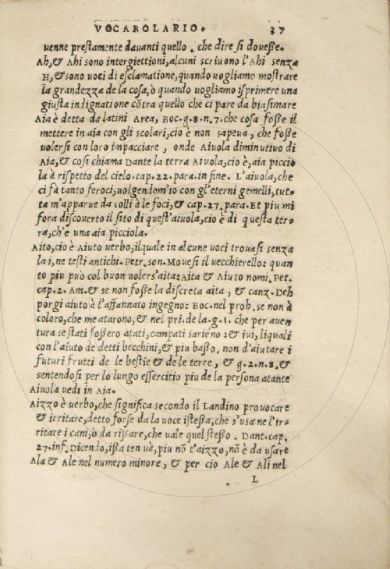 VOCABOLARIO. 37
uenne prestamente dauanti quello . che dire si douesse.
Ah, & Ahi sono intergiettioni, alcuni scriuono l'Ahi senza
H, & sono uoci di esclamatione, quando uogliamo mostrare
la grandezza de la cosa, ò quando uogliamo isprimere una
giusta indignatione cōtra quello che ci pare da biasimare
Aia è detta da latini Area, Boc. g. 8. n. 7. che cosa fosse il
mettere in aia con gli scolari, cio è non sapeua, che fosse
uolersi con loro impacciare , onde Aiuola diminutiuo di
Aia, & cosi chiama Dante la terra Aiuola, cio è, aia piccio
la à rispetto del cielo. cap. 22. para. in fine. L'aiuola, che
ci fà tanto feroci, uolgendom'io con gl'eterni gemelli, tut-
ta m'apparue da colli à le foci, & cap. 27. para. Et piu mi
fora discouerto il sito di quest'aiuola, cio è di questa ter-
ra, ch'è una aia picciola.
Aito, cio è Aiuto uerbo, ilquale in alcune uoci trouasi senza
la i, ne testi antichi. Petr. son. Mouesi il uecchierello: quan
to piu può col buon uolers'aita: Aita & Aiuto nomi. Pet.
cap. 2. Am. & se non fosse la discreta aita , & canz. Deh
porgi aiuto à l'affannato ingegno: Boc. nel proh. se non à
coloro, che me atarono, & nel pri. de la. g. 1. che per auen
tura se stati fossero atati, campati sarieno : & iui, liquali
con l'aiuto de detti becchini, & piu basso, non d'aiutare i
futuri frutti de le bestie & de le terre, & g. 2. n. 8, &
sentendosi per lo lungo essercitio piu de la persona atante
Aiuola uedi in Aia.
Aizzo è uerbo, che significa secondo il Landino prouocare
& irritare, detto forse da la uoce istessa, che s'usa ne l'ir-
ritare i cani, ò da rissare, che uale quel stesso . Dant. cap.
27. inf. Dicendo, issa ten uè, piu nō t'aizzo, nō è da usare
Ala & Ale nel numero minore, & per cio Ale & Ali nel
L